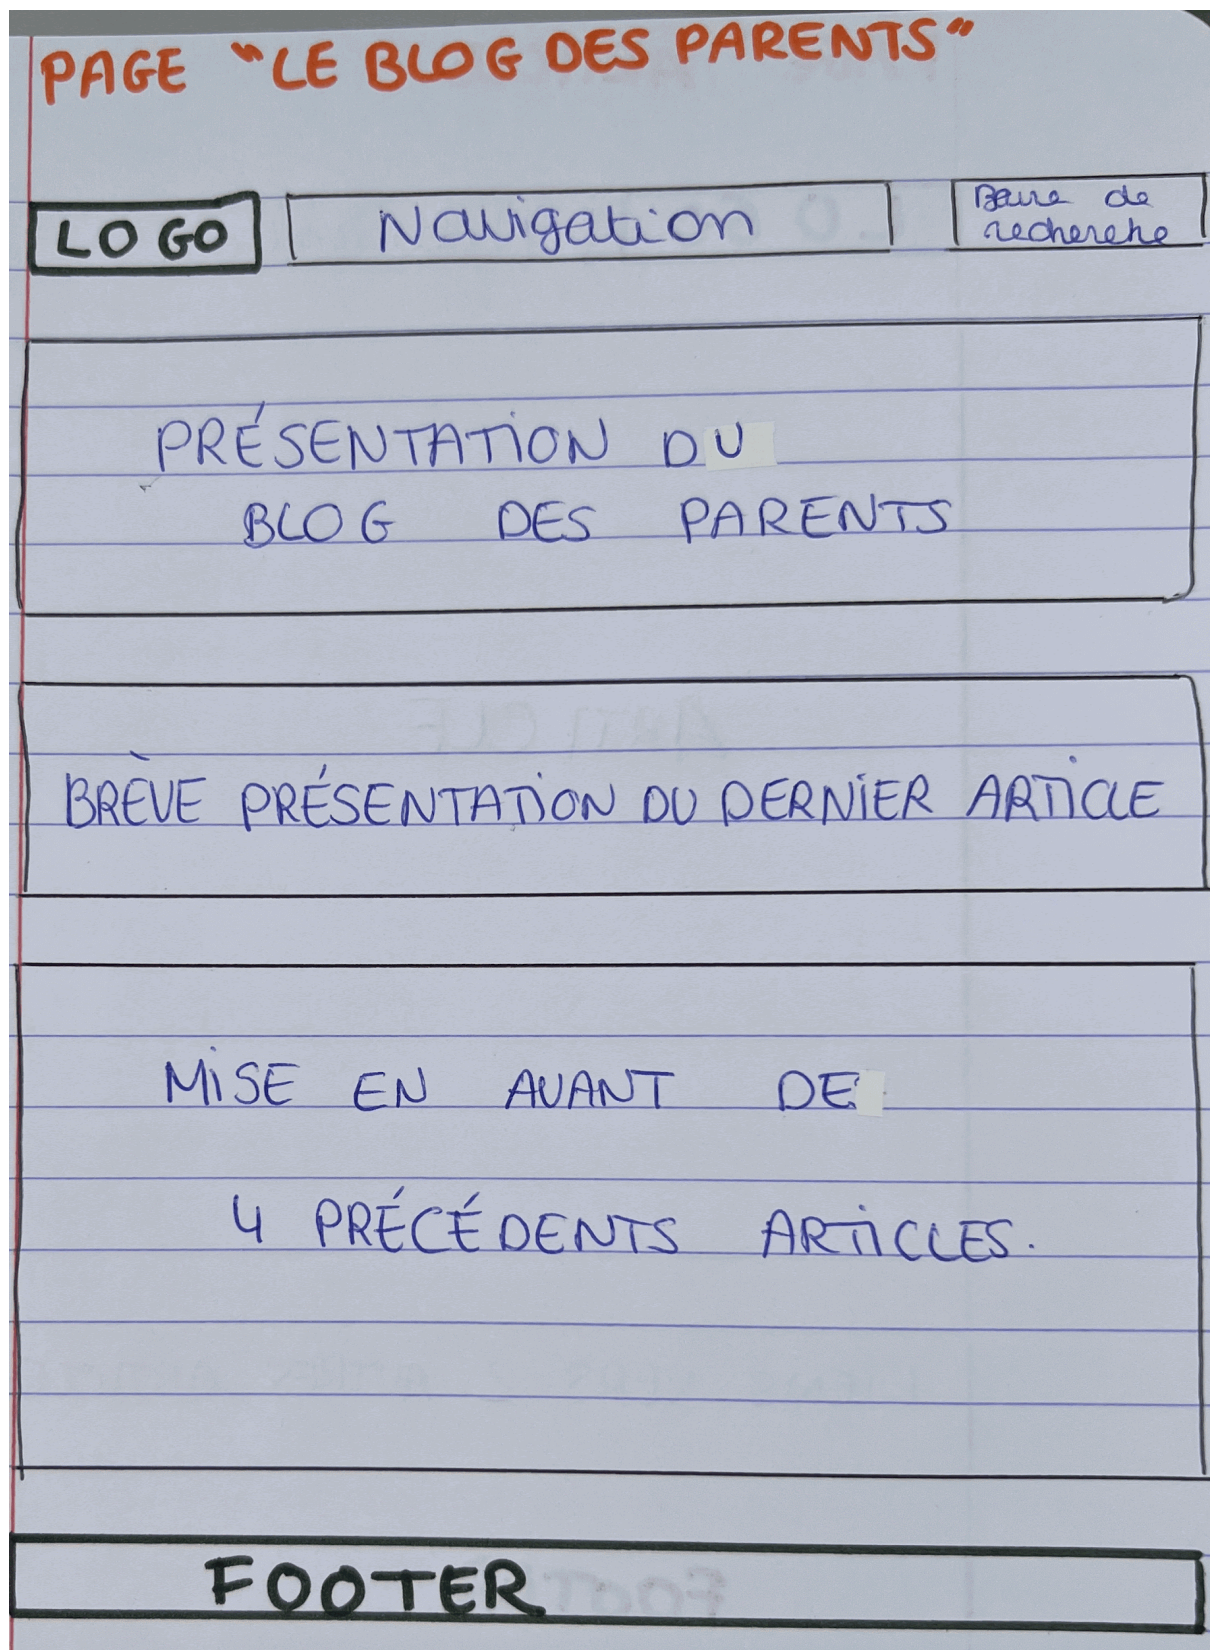 PAGE "LE BLOG DES PARENTS"
LOGO
Navigation
Barre de
recherche
PRÉSENTATION DU
BLOG DES PARENTS
BRÈVE PRÉSENTATION DU DERNIER ARTICLE
MISE EN AVANT DE
4 PRÉCÉDENTS ARTICLES.
FOOTER